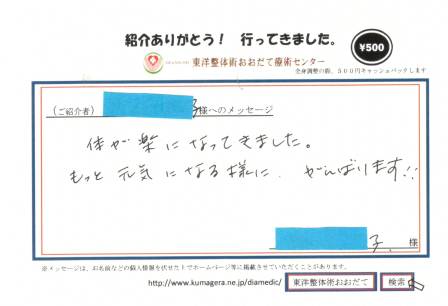 紹介ありがとう！ 行ってきました。
¥500
東洋整体術おおだて療術センター
全身調整の際、500円キャッシュバックします
（ご紹介者）
子様へのメッセージ
体が楽になってきました。
もっと元気になる様に、がんばります!!
子 様
※メッセージは、お名前などの個人情報を伏せた上でホームページ等に掲載させていただくことがあります。
http://www.kumagera.ne.jp/diamedic/ 東洋整体術おおだて 検索